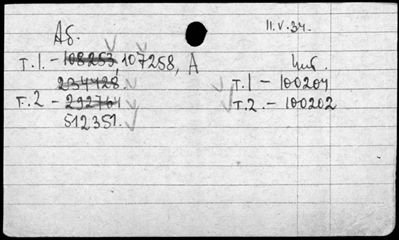 Аб.
11.V.34.
т.1.- 108253, 107258, А
234428.
т.2 - 292764
512351.
Чит.
т.1 - 100204
т.2. - 100202